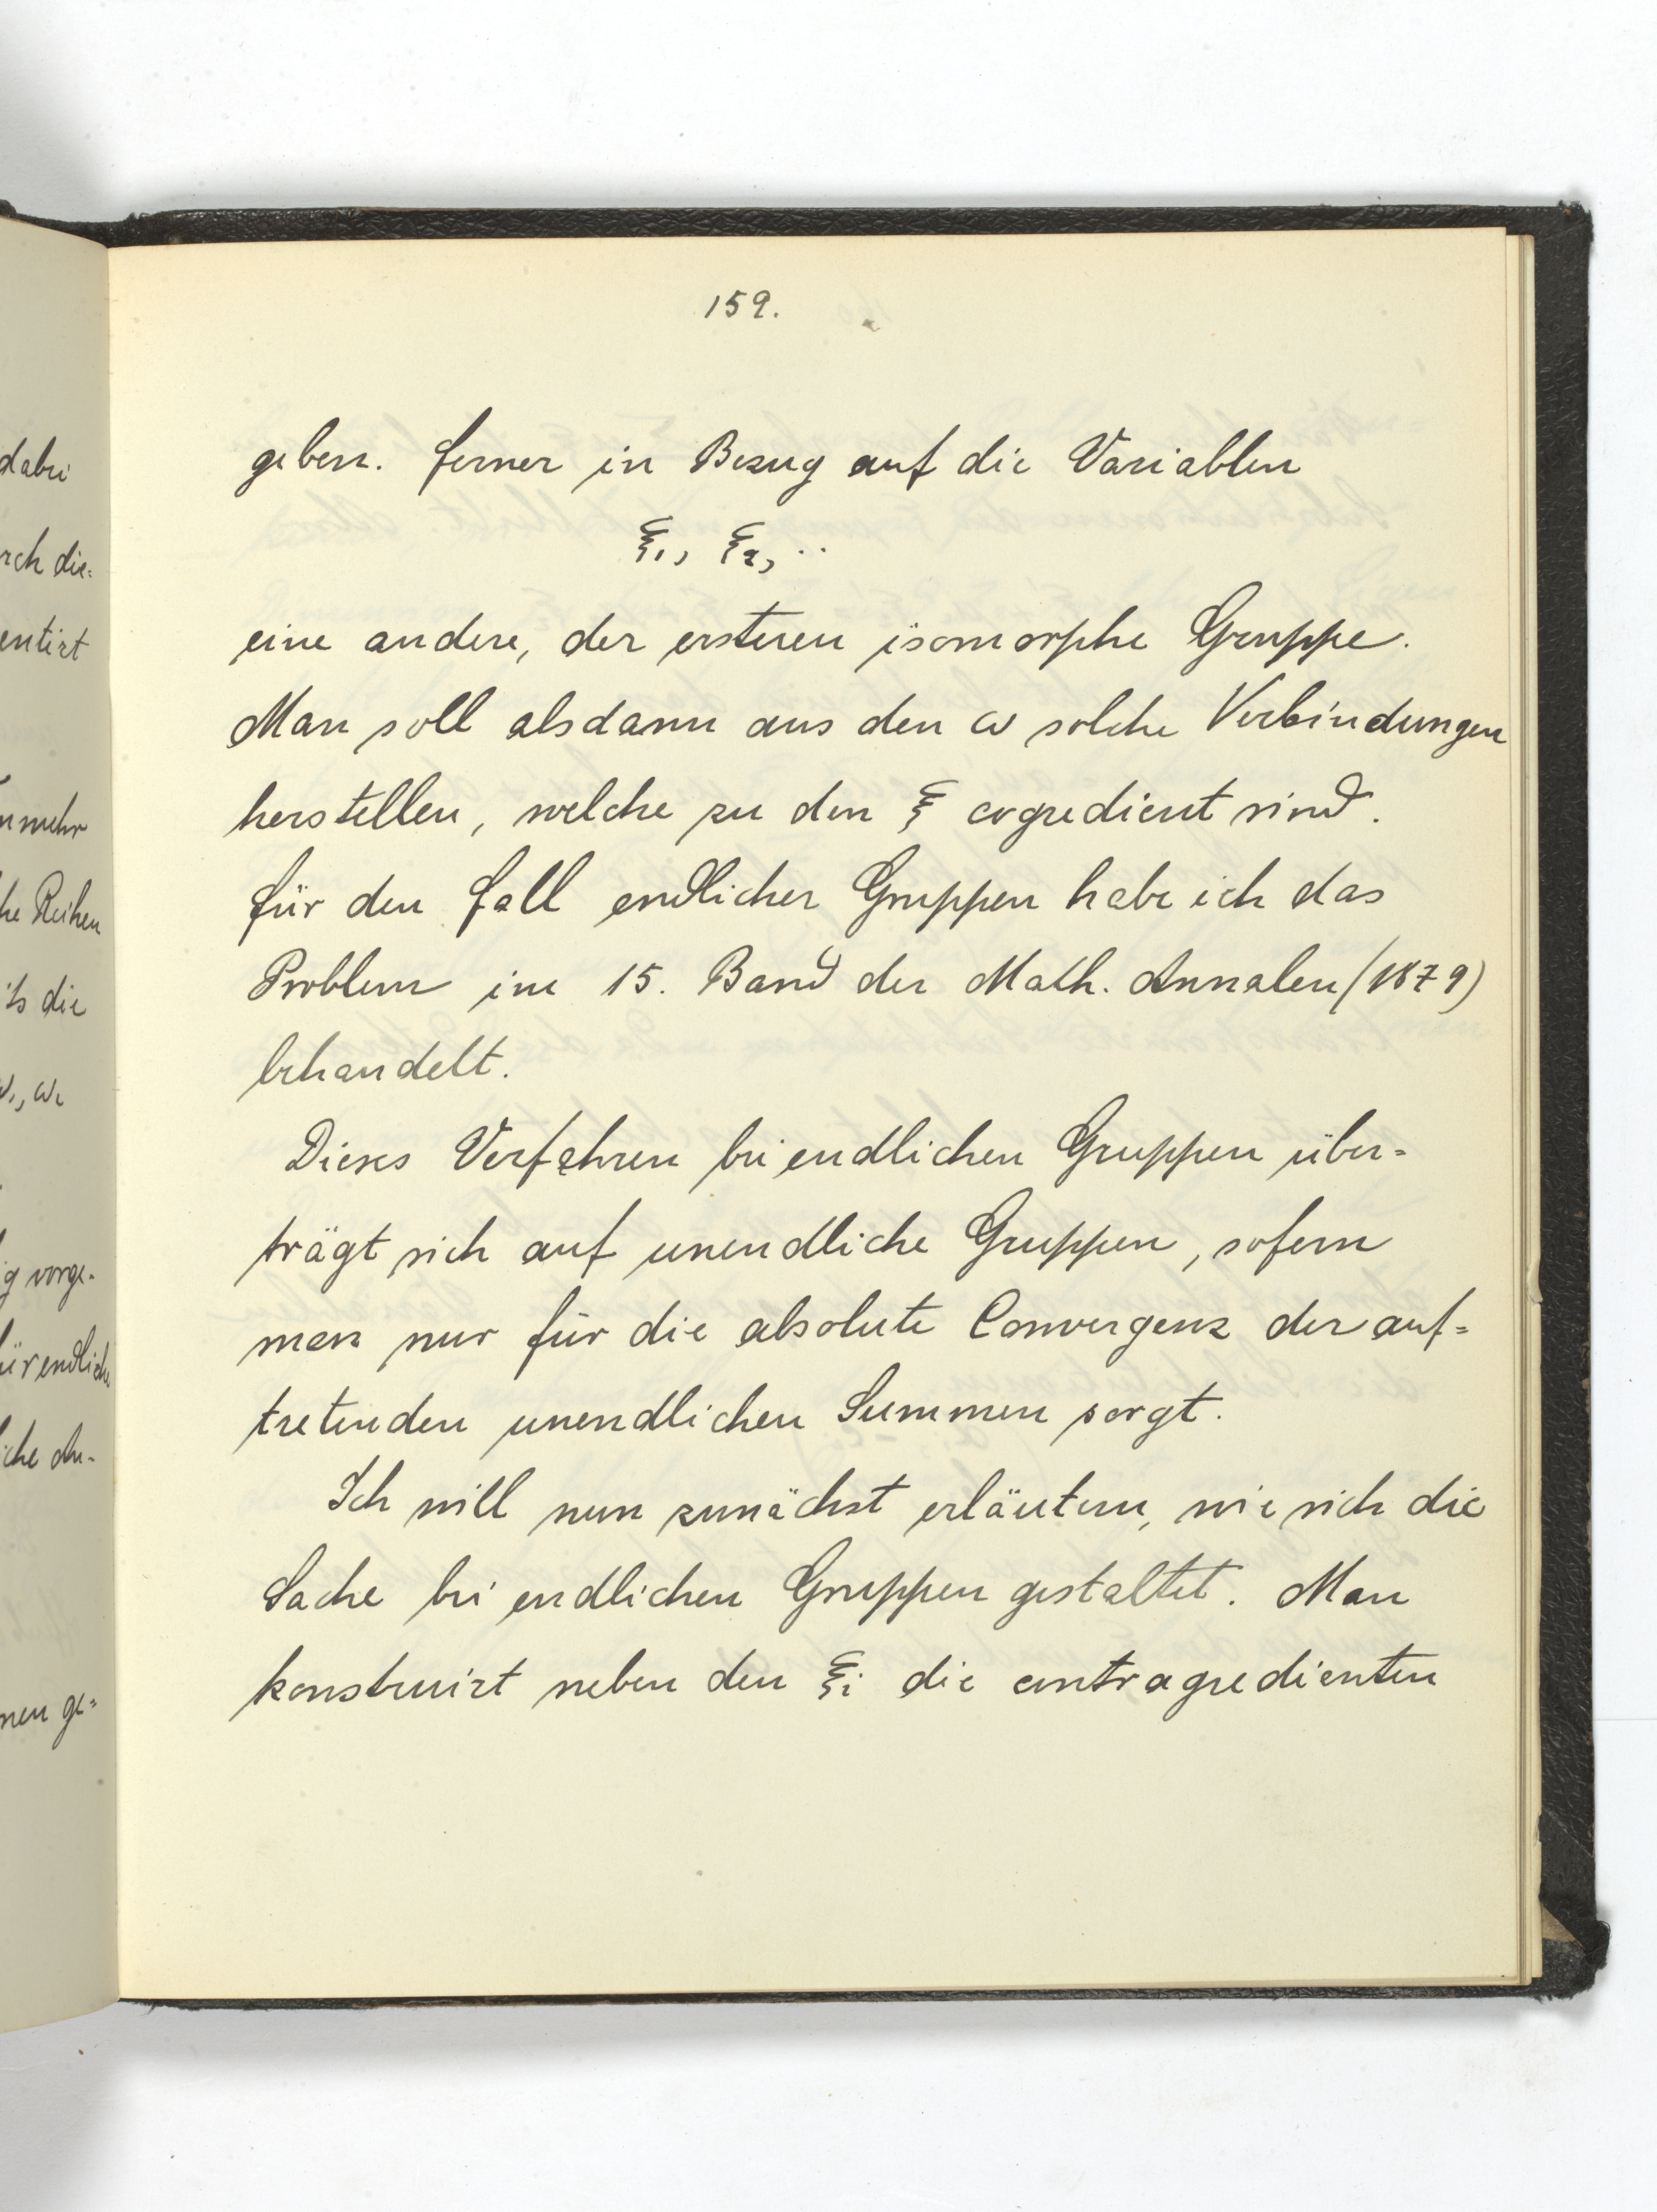 159.
geben. Ferner in Bezug auf die Variablen
ξ₁, ξ₂, ..
eine andere, der ersteren isomorphe Gruppe.
Man soll alsdann aus den ω solche Verbindungen
herstellen, welche zu den ξ cogredient sind.
Für den Fall endlicher Gruppen habe ich das
Problem im 15. Band der Math. Annalen (1879)
behandelt.
Dieses Verfahren bei endlichen Gruppen über=
trägt sich auf unendliche Gruppen, sofern
man nur für die absolute Convergenz der auf=
tretenden unendlichen Summen sorgt.
Ich will nun zunächst erläutern, wie sich die
Sache bei endlichen Gruppen gestaltet. Man
konstruirt neben den ξi die contragredienten
dabei
rch die=
entirt
mehr
he Reihen
die
ω₁, ω₂
g vorge-
ür endliche
iche An-
nen ge=